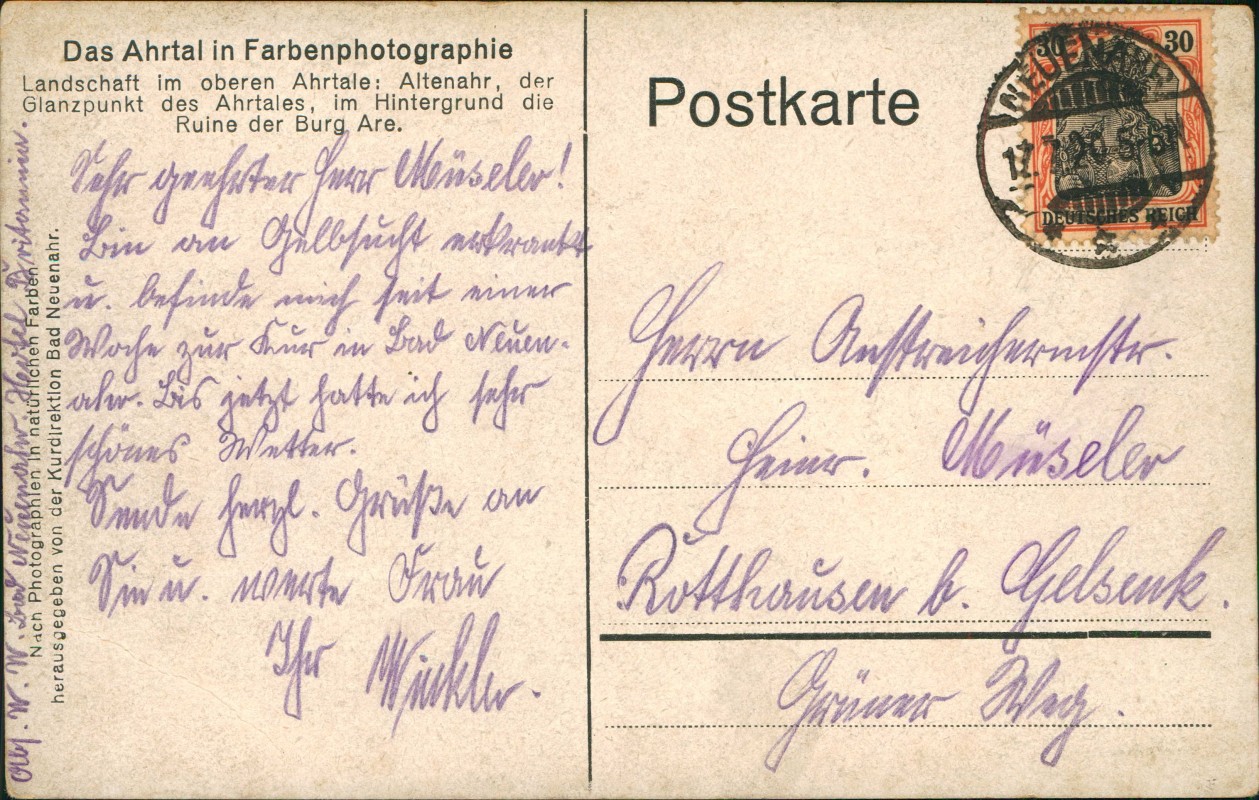 Das Ahrtal in Farbenphotographie
Landschaft im oberen Ahrtale: Altenahr, der
Glanzpunkt des Ahrtales, im Hintergrund die
Ruine der Burg Are.
Sehr geehrter Herr Müseler!
Bin an Gelbsucht erkrankt
u. befinde mich seit einer
Woche zur Kur in Bad Neuen-
ahr. Bis jetzt hatte ich sehr
schönes Wetter.
Sende herzl. Grüße an
Sie u. werte Frau
Ihr Winkler.
Abs. W. W. Bad Neuenahr. Hotel Britannia.
Nach Photographien in natürlichen Farben
herausgegeben von der Kurdirektion Bad Neuenahr.
Postkarte
30 30
DEUTSCHES REICH
NEUENAHR
5-6N
Herrn Anstreichermstr.
Heinr. Müseler
Rotthausen b. Gelsenk.
Grüner Weg.